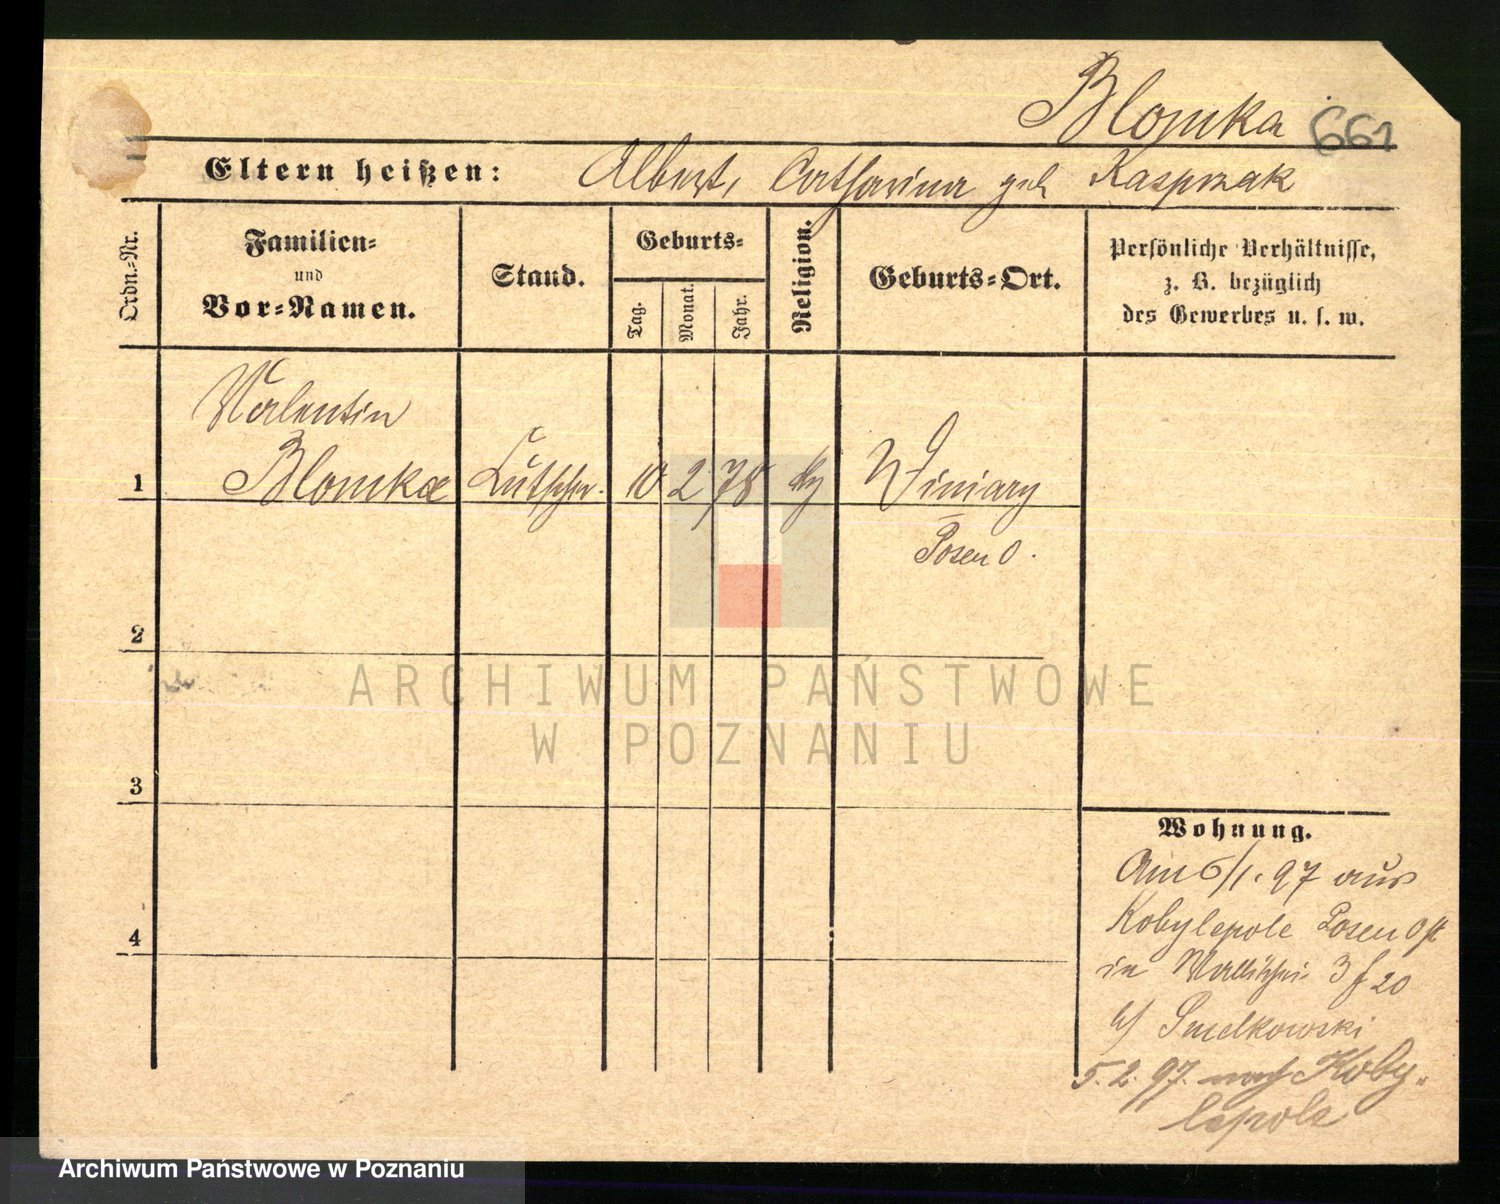 Blomka 661
Eltern heißen: Albert, Catharina geb Kasprzak
Ordn.-Nr.
Familien-
und
Vor-Namen.
Stand.
Geburts-
Tag.
Monat.
Jahr.
Religion.
Geburts-Ort.
Persönliche Verhältnisse,
z. B. bezüglich
des Gewerbes u. s. w.
Valentin
1 Blomka Kutscher 10 2 78 Winiary
Posen O.
2
3
4
ARCHIWUM PAŃSTWOWE
W POZNANIU
Wohnung.
Am 6/1. 97 aus
Kobylepole Posen Ost
in Wallischei 3 f 20
b/ Smelkowski
5.2.97. nach Koby-
lepole
Archiwum Państwowe w Poznaniu